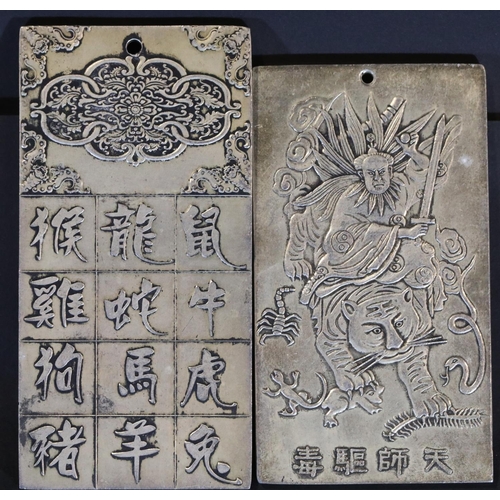 鼠牛虎兔
龍蛇馬羊
猴雞狗豬
天師驅毒